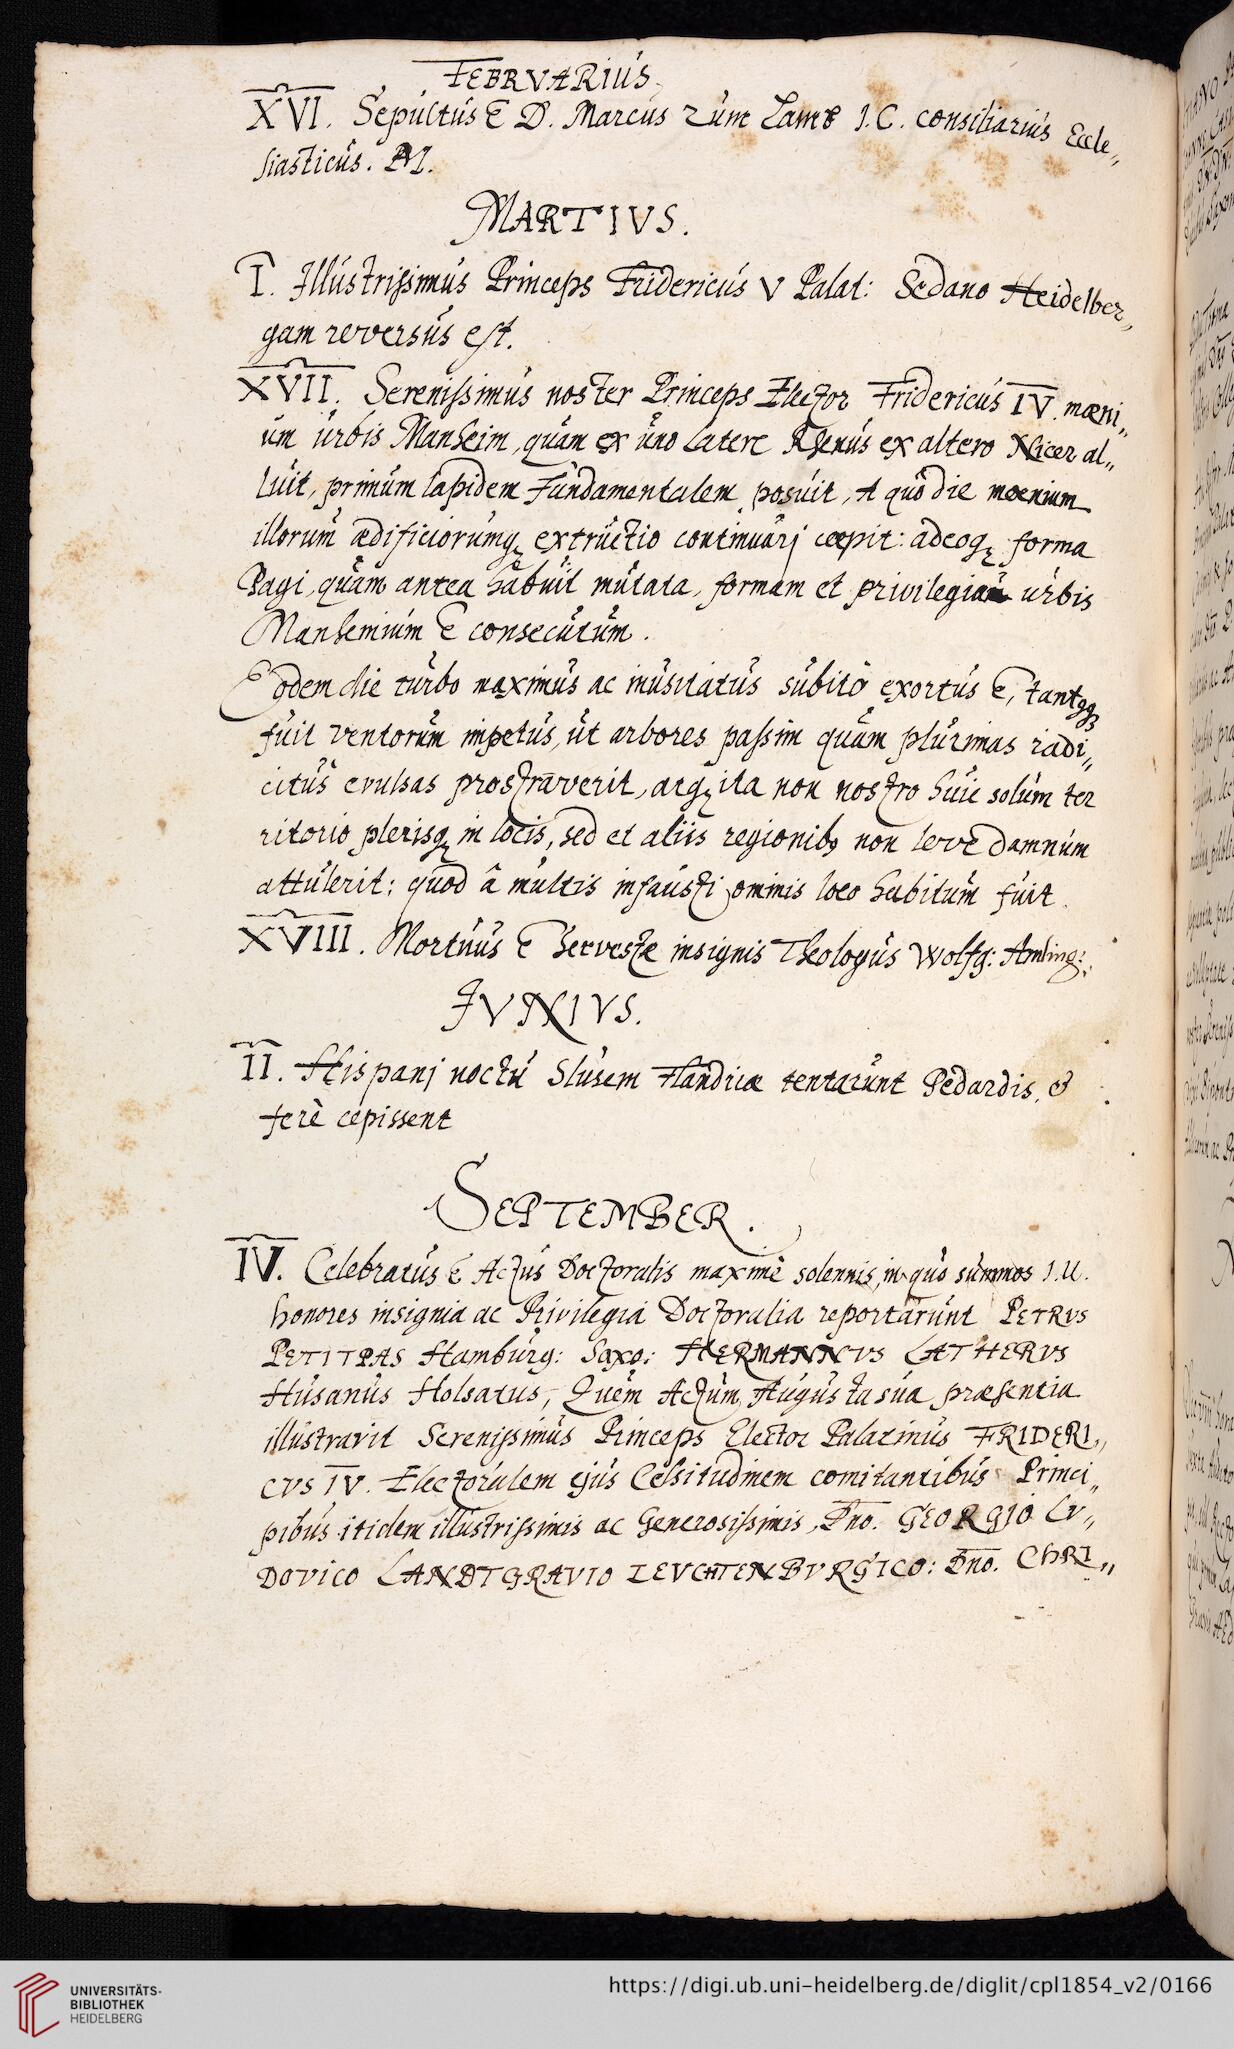 FEBRVARIUS.
XVI. Sepultus ē D. Marcus zum Lamb J.C. consiliarius Eccle„
siasticus. PM.
MARTIVS.
I. Illustrissimus Princeps Fridericus V Palat: Sedano Heidelber„
gam reversus est.
XVII. Serenissimus noster Princeps Elector Fridericus IV. mœni„
um urbis Manheim, quam ex uno latere Rhenus ex altero Nicer al„
luit, primum lapidem Fundamentalem posuit, A quo die moenium
illorum ædificiorumq꜀ extructio continuarj cœpit: adeoq꜀ forma
Pagi, quam antea habuit mutata, formam et privilegiam urbis
Manhemium ē consecutum.
Eodem die turbo maximus ac inusitatus subitò exortus ē, tantqq꜀
fuit ventorum impetus, ut arbores passim quam plurimas radi„
citus evulsas prostraverit, atq꜀ ita non nostro huic solum ter
ritorio plerisq꜀ in locis, sed et aliis regionib9 non leve damnum
attulerit: quod â multis infausti ominis loco habitum fuit.
XVIII. Mortuus ē Servestæ insignis Theologus Wolfg: Amling:
JVNIVS.
II. Hispanj noctu Slusem Flandriæ tentarunt Pedardis, &
ferè cepissent
SEPTEMBER.
IV. Celebratus ē Actus Doctoralis maximè solennis, in quo summos J.U.
honores insignia ac Privilegia Doctoralia reportarunt PETRVS
PETITPAS Hamburg: Saxo: HERMANNVS LATHERVS
Husanus Holsatus, Quem Actum, Augusta sua præsentia
illustravit Serenissimus Princeps Elector Palatinus FRIDERI„
CVS IV. Electoralem ejus Celsitudinem comitantibus Princi„
pibus itidem illustrissimis ac Generosissimis, Dno. GEORGIO LV„
DOVICO LANDTGRAVIO LEVCHTENBVRGICO: Dno. CHRI„
UNIVERSITÄTS-
BIBLIOTHEK
HEIDELBERG
https://digi.ub.uni-heidelberg.de/diglit/cpl1854_v2/0166